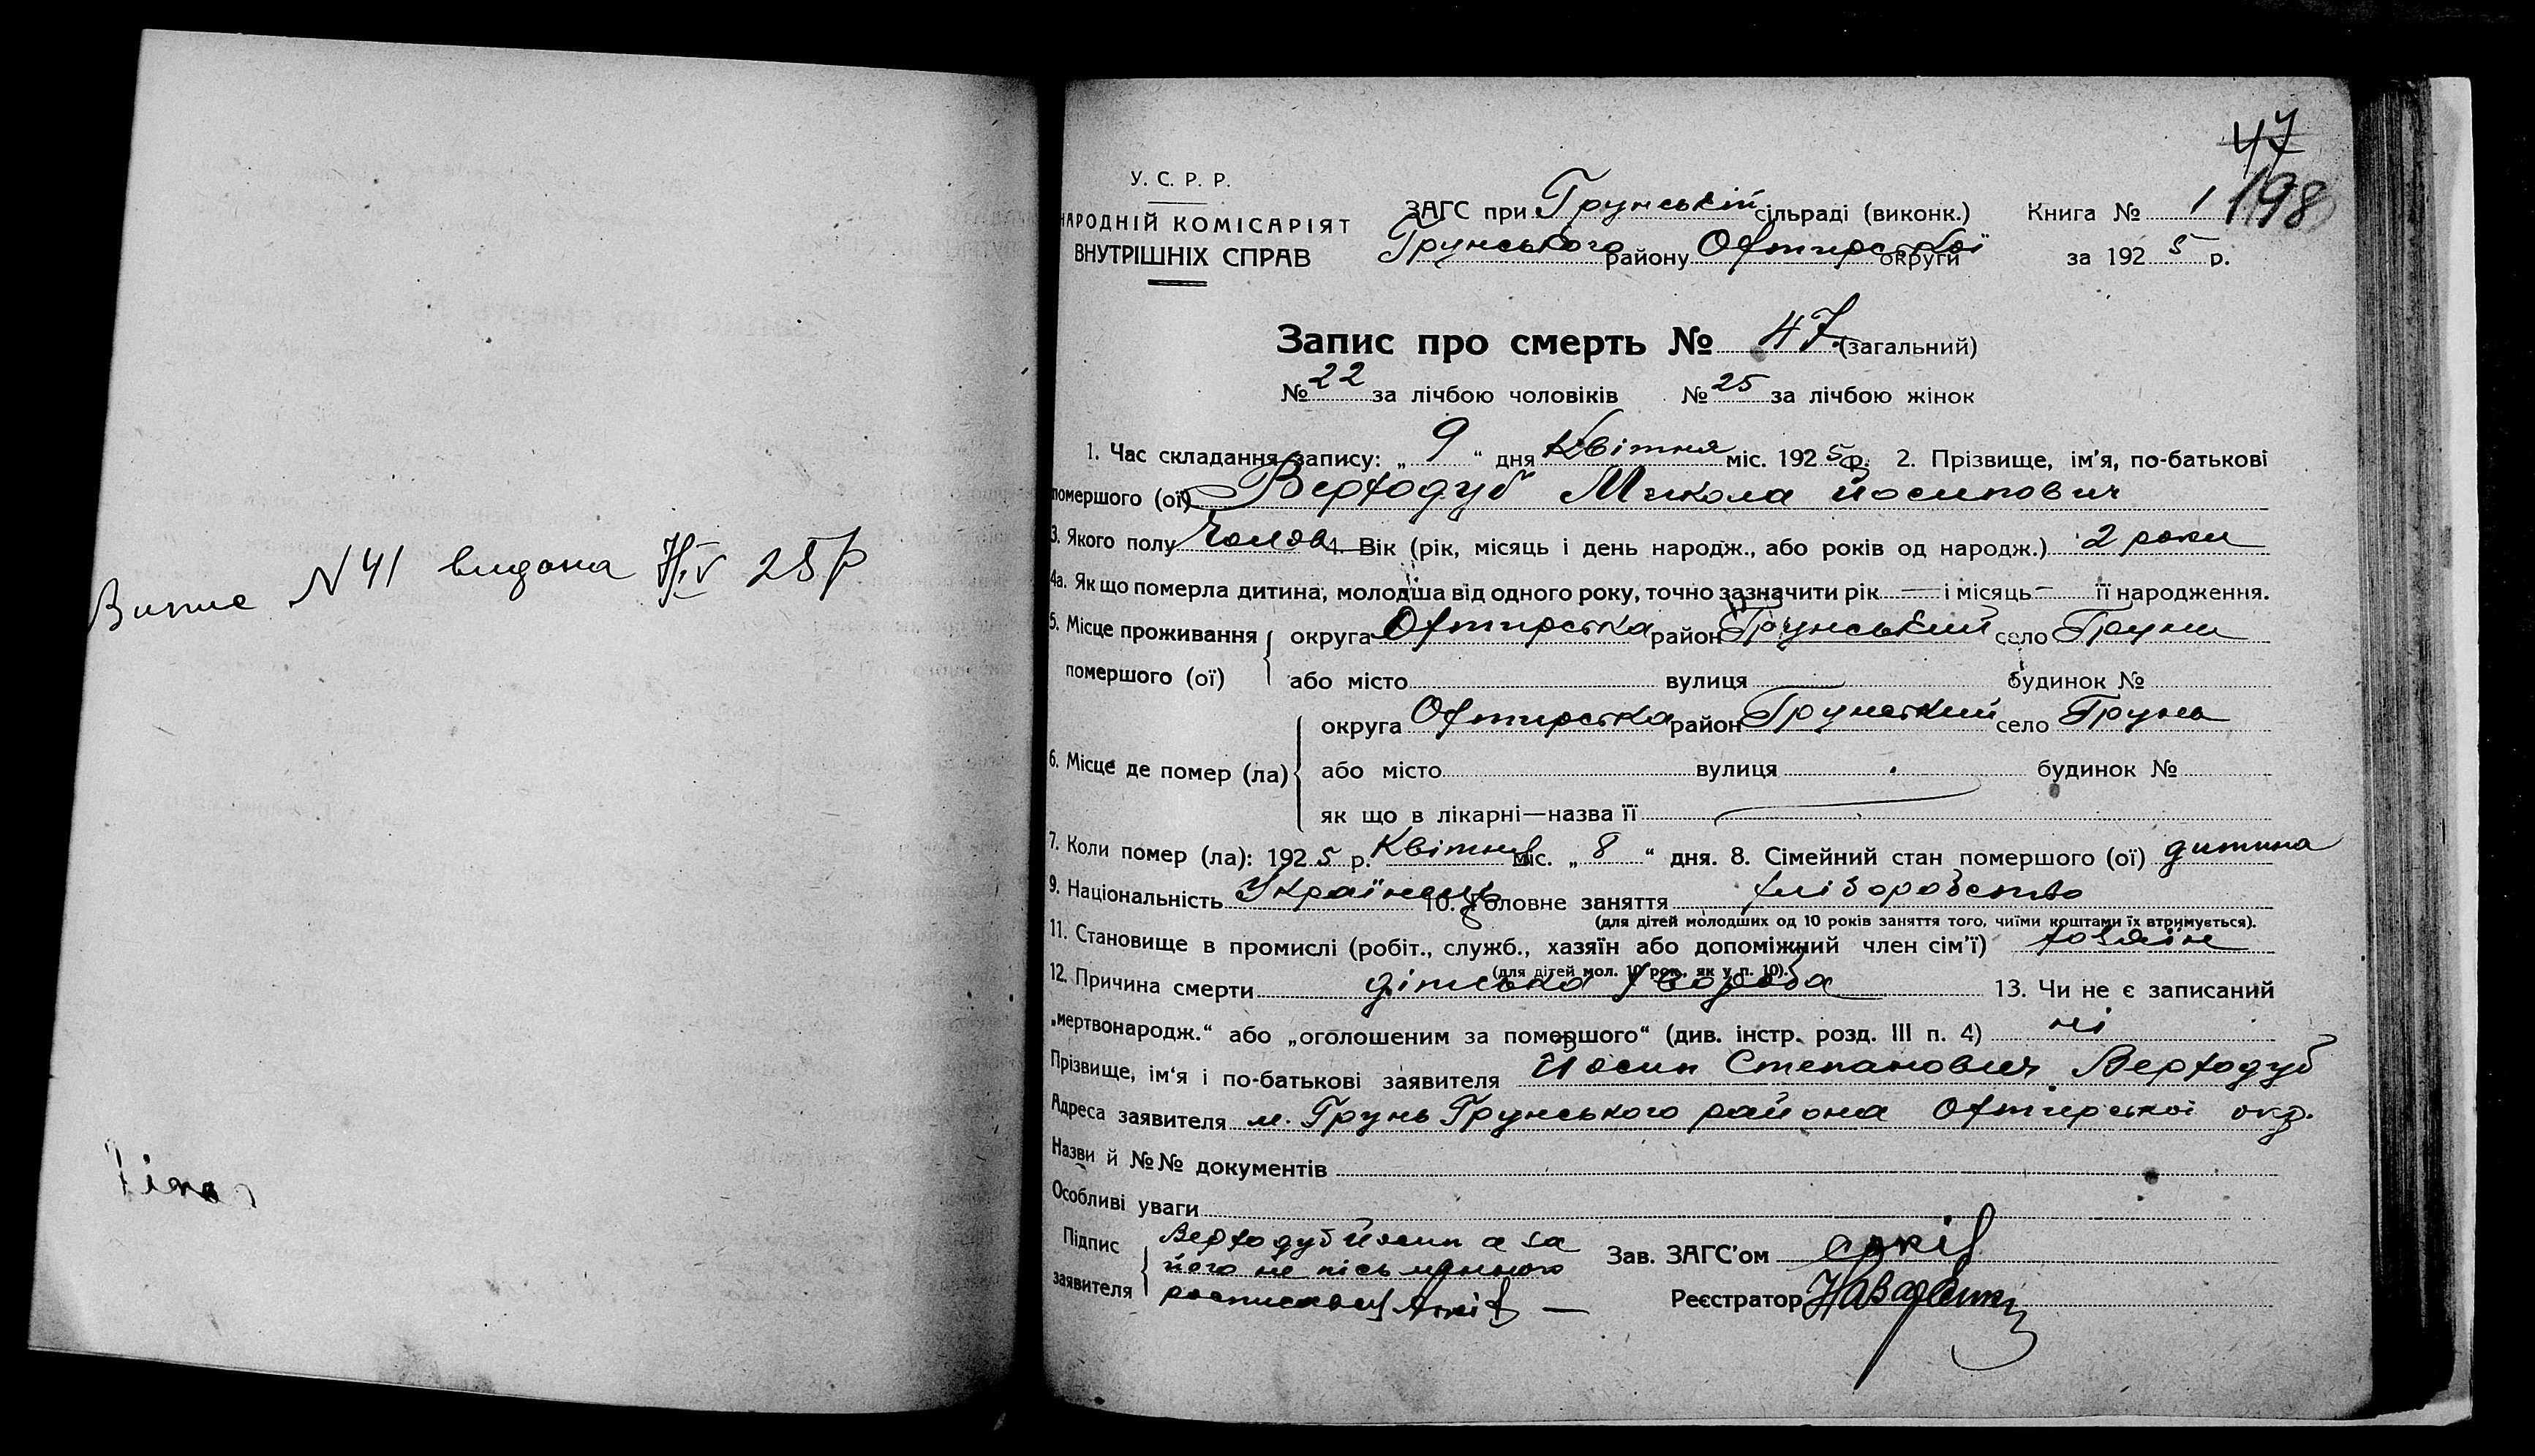 Випис N 41 видана 25 р
47
198
У. С. Р. Р.
НАРОДНІЙ КОМІСАРІЯТ
ВНУТРІШНІХ СПРАВ
ЗАГС при Грунській сільраді (виконк.)
Грунського району Охтирської округи
Книга № 1
за 1925 р.
Запис про смерть № 47 (загальний)
№ 22 за лічбою чоловіків № 25 за лічбою жінок
1. Час складання запису: „ 9 “ дня Квітня міс. 1925 р. 2. Прізвище, ім'я, по-батькові
помершого (ої) Верходуб Микола Йосипович
3. Якого полу Чолов 4. Вік (рік, місяць і день народж., або років од народж.) 2 роки
4а. Як що померла дитина, молодша від одного року, точно зазначити рік — і місяць — її народження.
5. Місце проживання помершого (ої) округа Охтирська район Грунський село Груни
або місто вулиця — будинок №
6. Місце де помер (ла) округа Охтирська район Грунський село Грунь
або місто вулиця будинок №
як що в лікарні—назва її —
7. Коли помер (ла): 1925 р. Квітня міс. „ 8 “ дня. 8. Сімейний стан помершого (ої) дитина
9. Національність Українець 10. Головне заняття хліборобство
(для дітей молодших од 10 років заняття того, чиїми коштами їх втримується).
11. Становище в промислі (робіт., служб., хазяїн або допоміжний член сім'ї) хозяїн
(для дітей мол. 10 рок., як у п. 10).
12. Причина смерти дітська хвороба 13. Чи не є записаний
„мертвонародж.“ або „оголошеним за помершого“ (див. інстр. розд. III п. 4) ні
Прізвище, ім'я і по-батькові заявителя Йосип Степанович Верходуб
Адреса заявителя м. Грунь Грунського района Охтирської окр.
Назви й №№ документів
Особливі уваги
Підпис заявителя Верходуб Йосип а за
його не письменного
росписавсь
Зав. ЗАГС'ом
Реєстратор